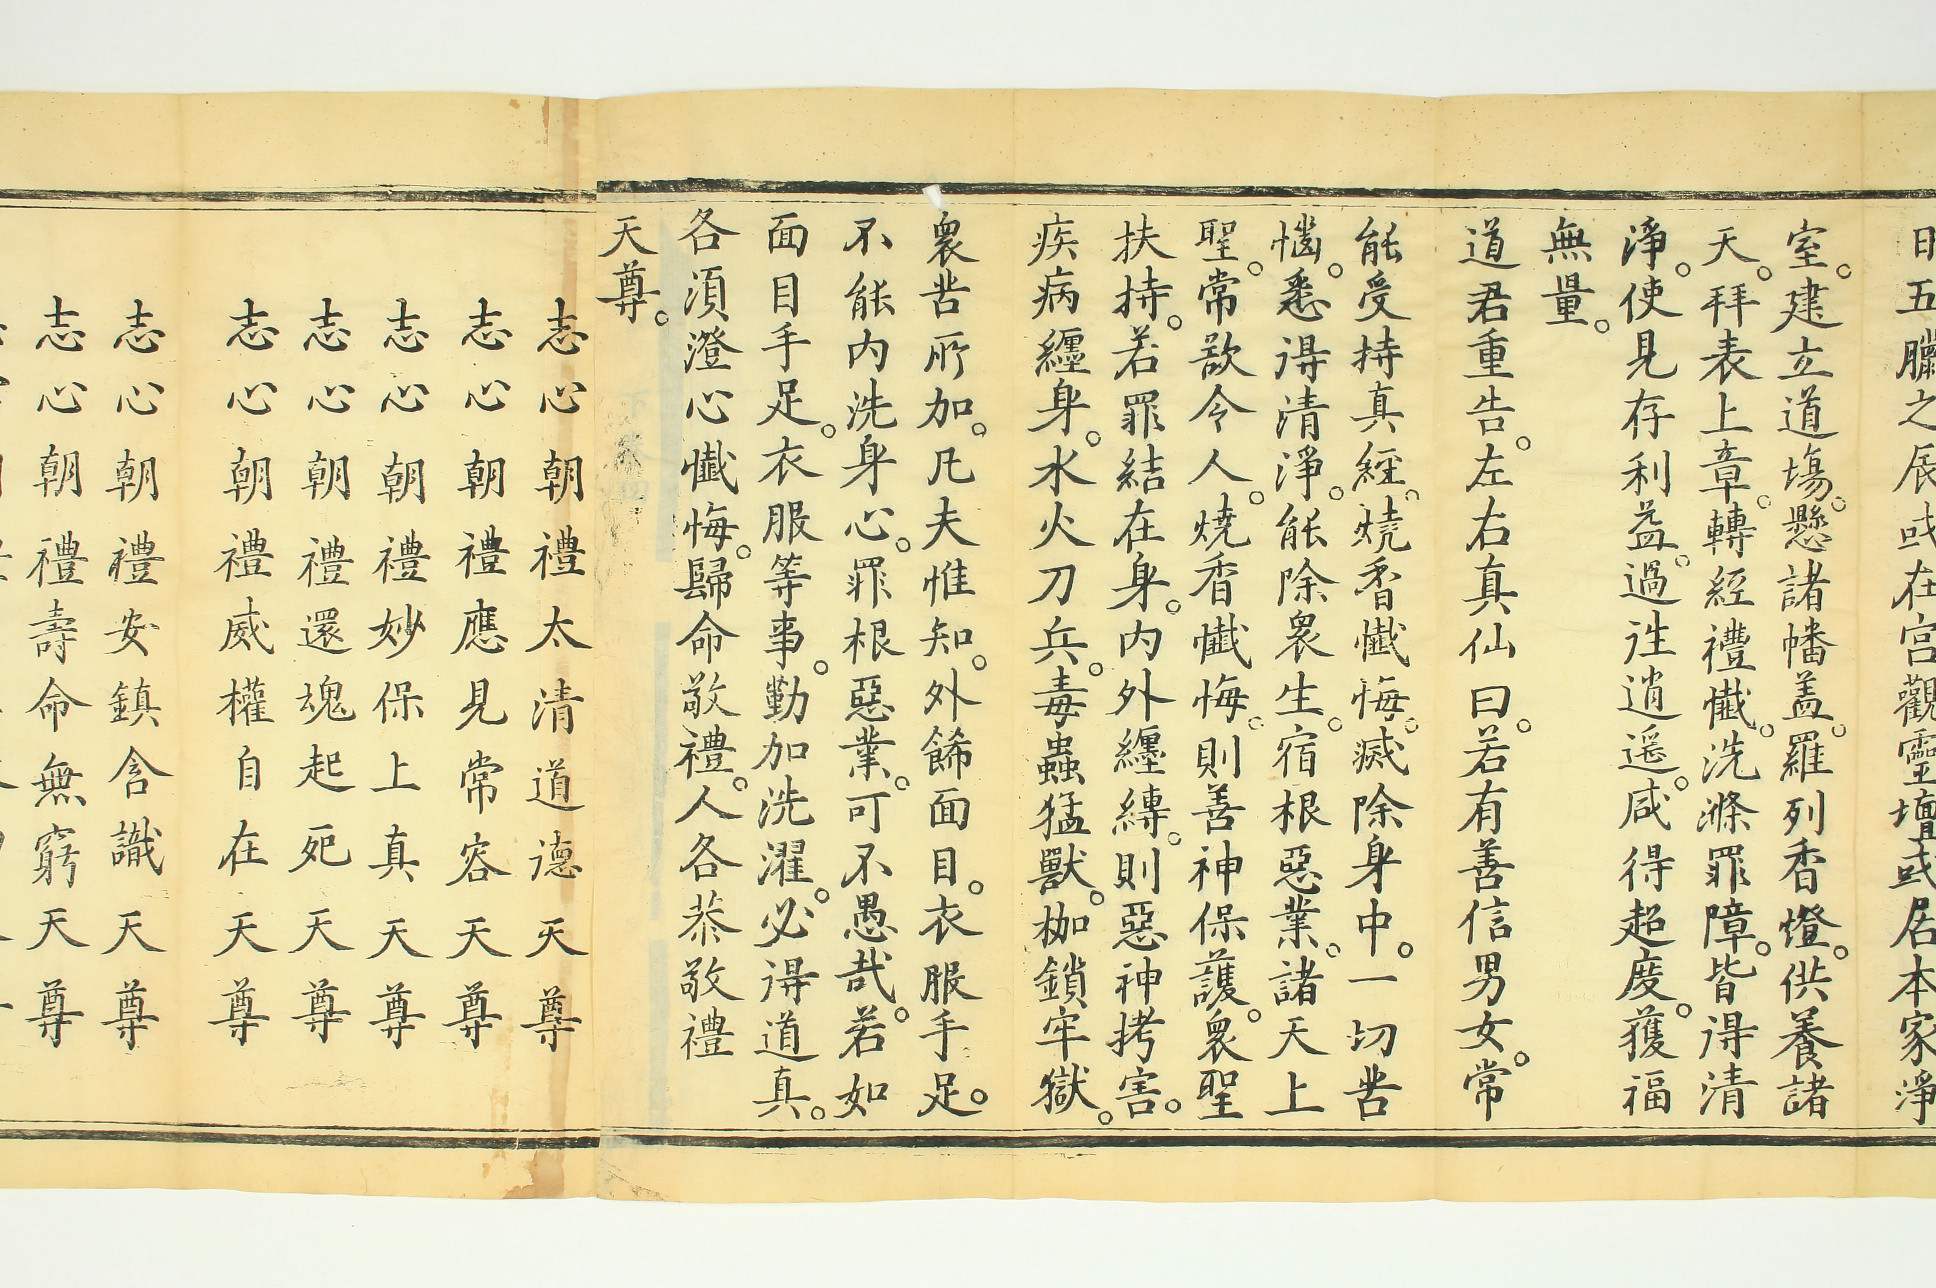 日五臘之辰或在宫觀靈壇或居本家淨
室。建立道場。懸諸幡盖。羅列香燈。供養諸
天。拜表上章。轉經禮懺。洗滌罪障。皆得清
淨。使見存利益。過徃逍遥。咸得超度。獲福
無量。
道君重告。左右真仙曰。若有善信男女。常
能受持真經。燒香懺悔。滅除身中。一切苦
惱。悉得清淨。能除衆生。宿根惡業。諸天上
聖。常欲令人。燒香懺悔。則善神保護。衆聖
扶持。若罪結在身。内外纒縛。則惡神拷害。
疾病纒身。水火刀兵。毒蟲猛獸。枷鎖牢獄。
衆苦所加。凡夫惟知。外餙面目。衣服手足。
不能内洗身心。罪根惡業。可不愚哉。若如
面目手足。衣服等事。勤加洗濯。必得道真。
各須澄心懺悔。歸命敬禮。人各恭敬禮
天尊。
志心朝禮太清道德天尊
志心朝禮應見常容天尊
志心朝禮妙保上真天尊
志心朝禮還魂起死天尊
志心朝禮威權自在天尊
志心朝禮安鎮含識天尊
志心朝禮壽命無窮天尊